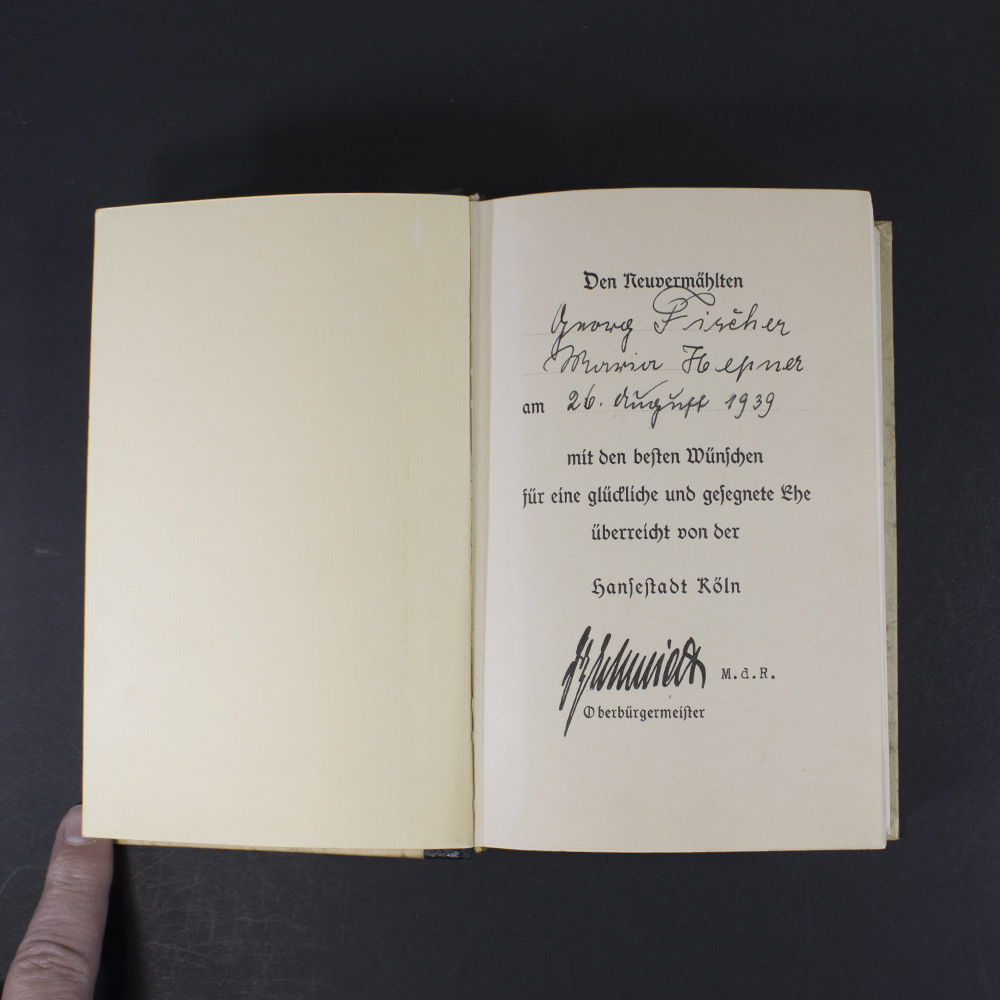 Den Neuvermählten
Georg Fischer
Maria Hepner
am 26. August 1939
mit den besten Wünschen
für eine glückliche und gesegnete Ehe
überreicht von der
Hansestadt Köln
Schmidt M.d.R.
Oberbürgermeister